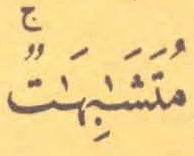 مُتَشَٰبِهَٰتٌ ۚ